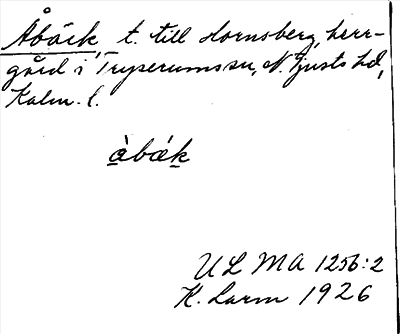 Åbäck, t. till Hornsberg, herr-
gård i Tryserums sn, N. Tjusts hd,
Kalm. l.
àbák
ULMA 1256:2
K. Larm 1926